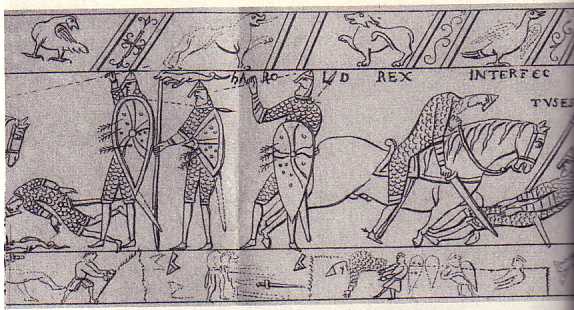 hARO LD REX INTERFEC
TVSES